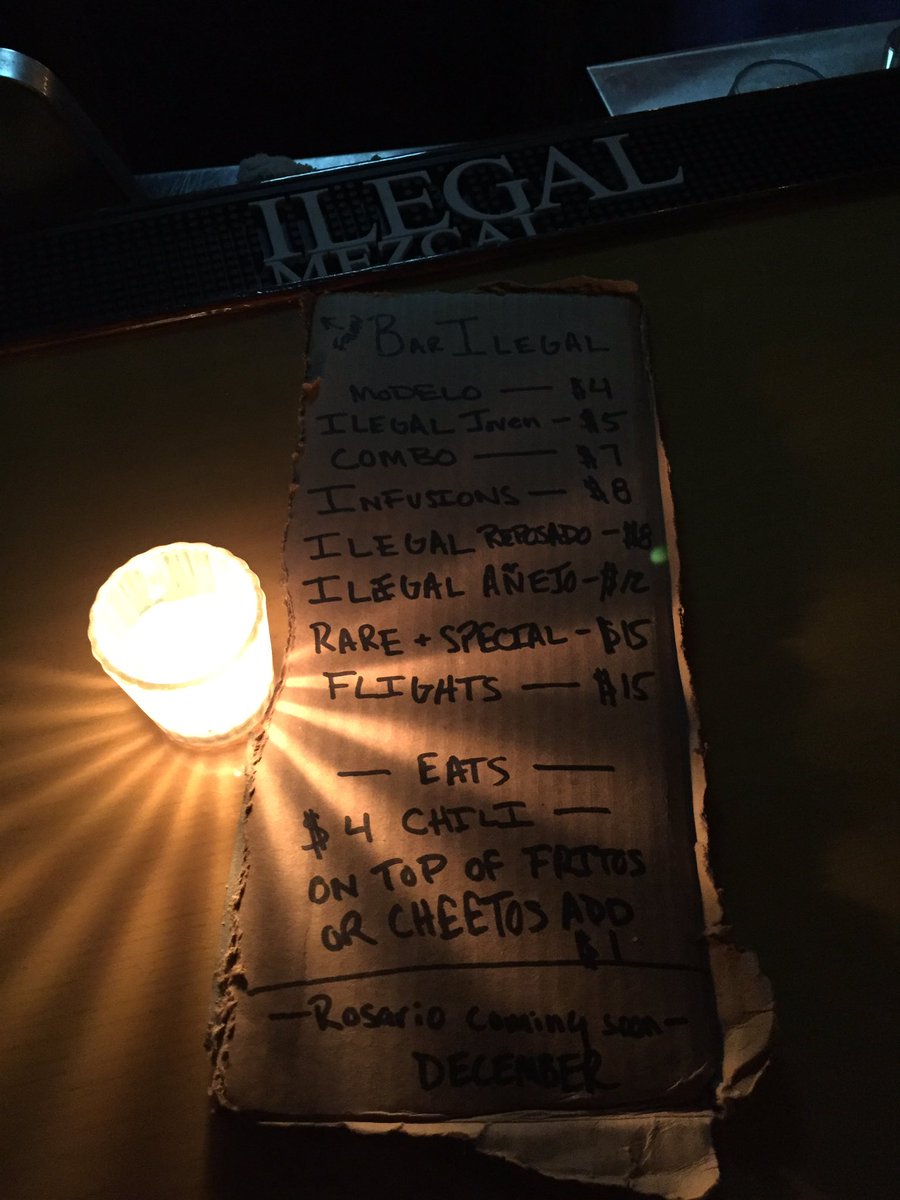 ILEGAL
MEZCAL
BAR ILEGAL
MODELO — $4
ILEGAL Joven - $5
COMBO — $7
INFUSIONS — $8
ILEGAL REPOSADO - $8
ILEGAL AÑEJO - $12
RARE + SPECIAL - $15
FLIGHTS — $15
— EATS —
$4 CHILI —
ON TOP OF FRITOS
OR CHEETOS ADD
$1
— Rosario coming soon -
DECEMBER